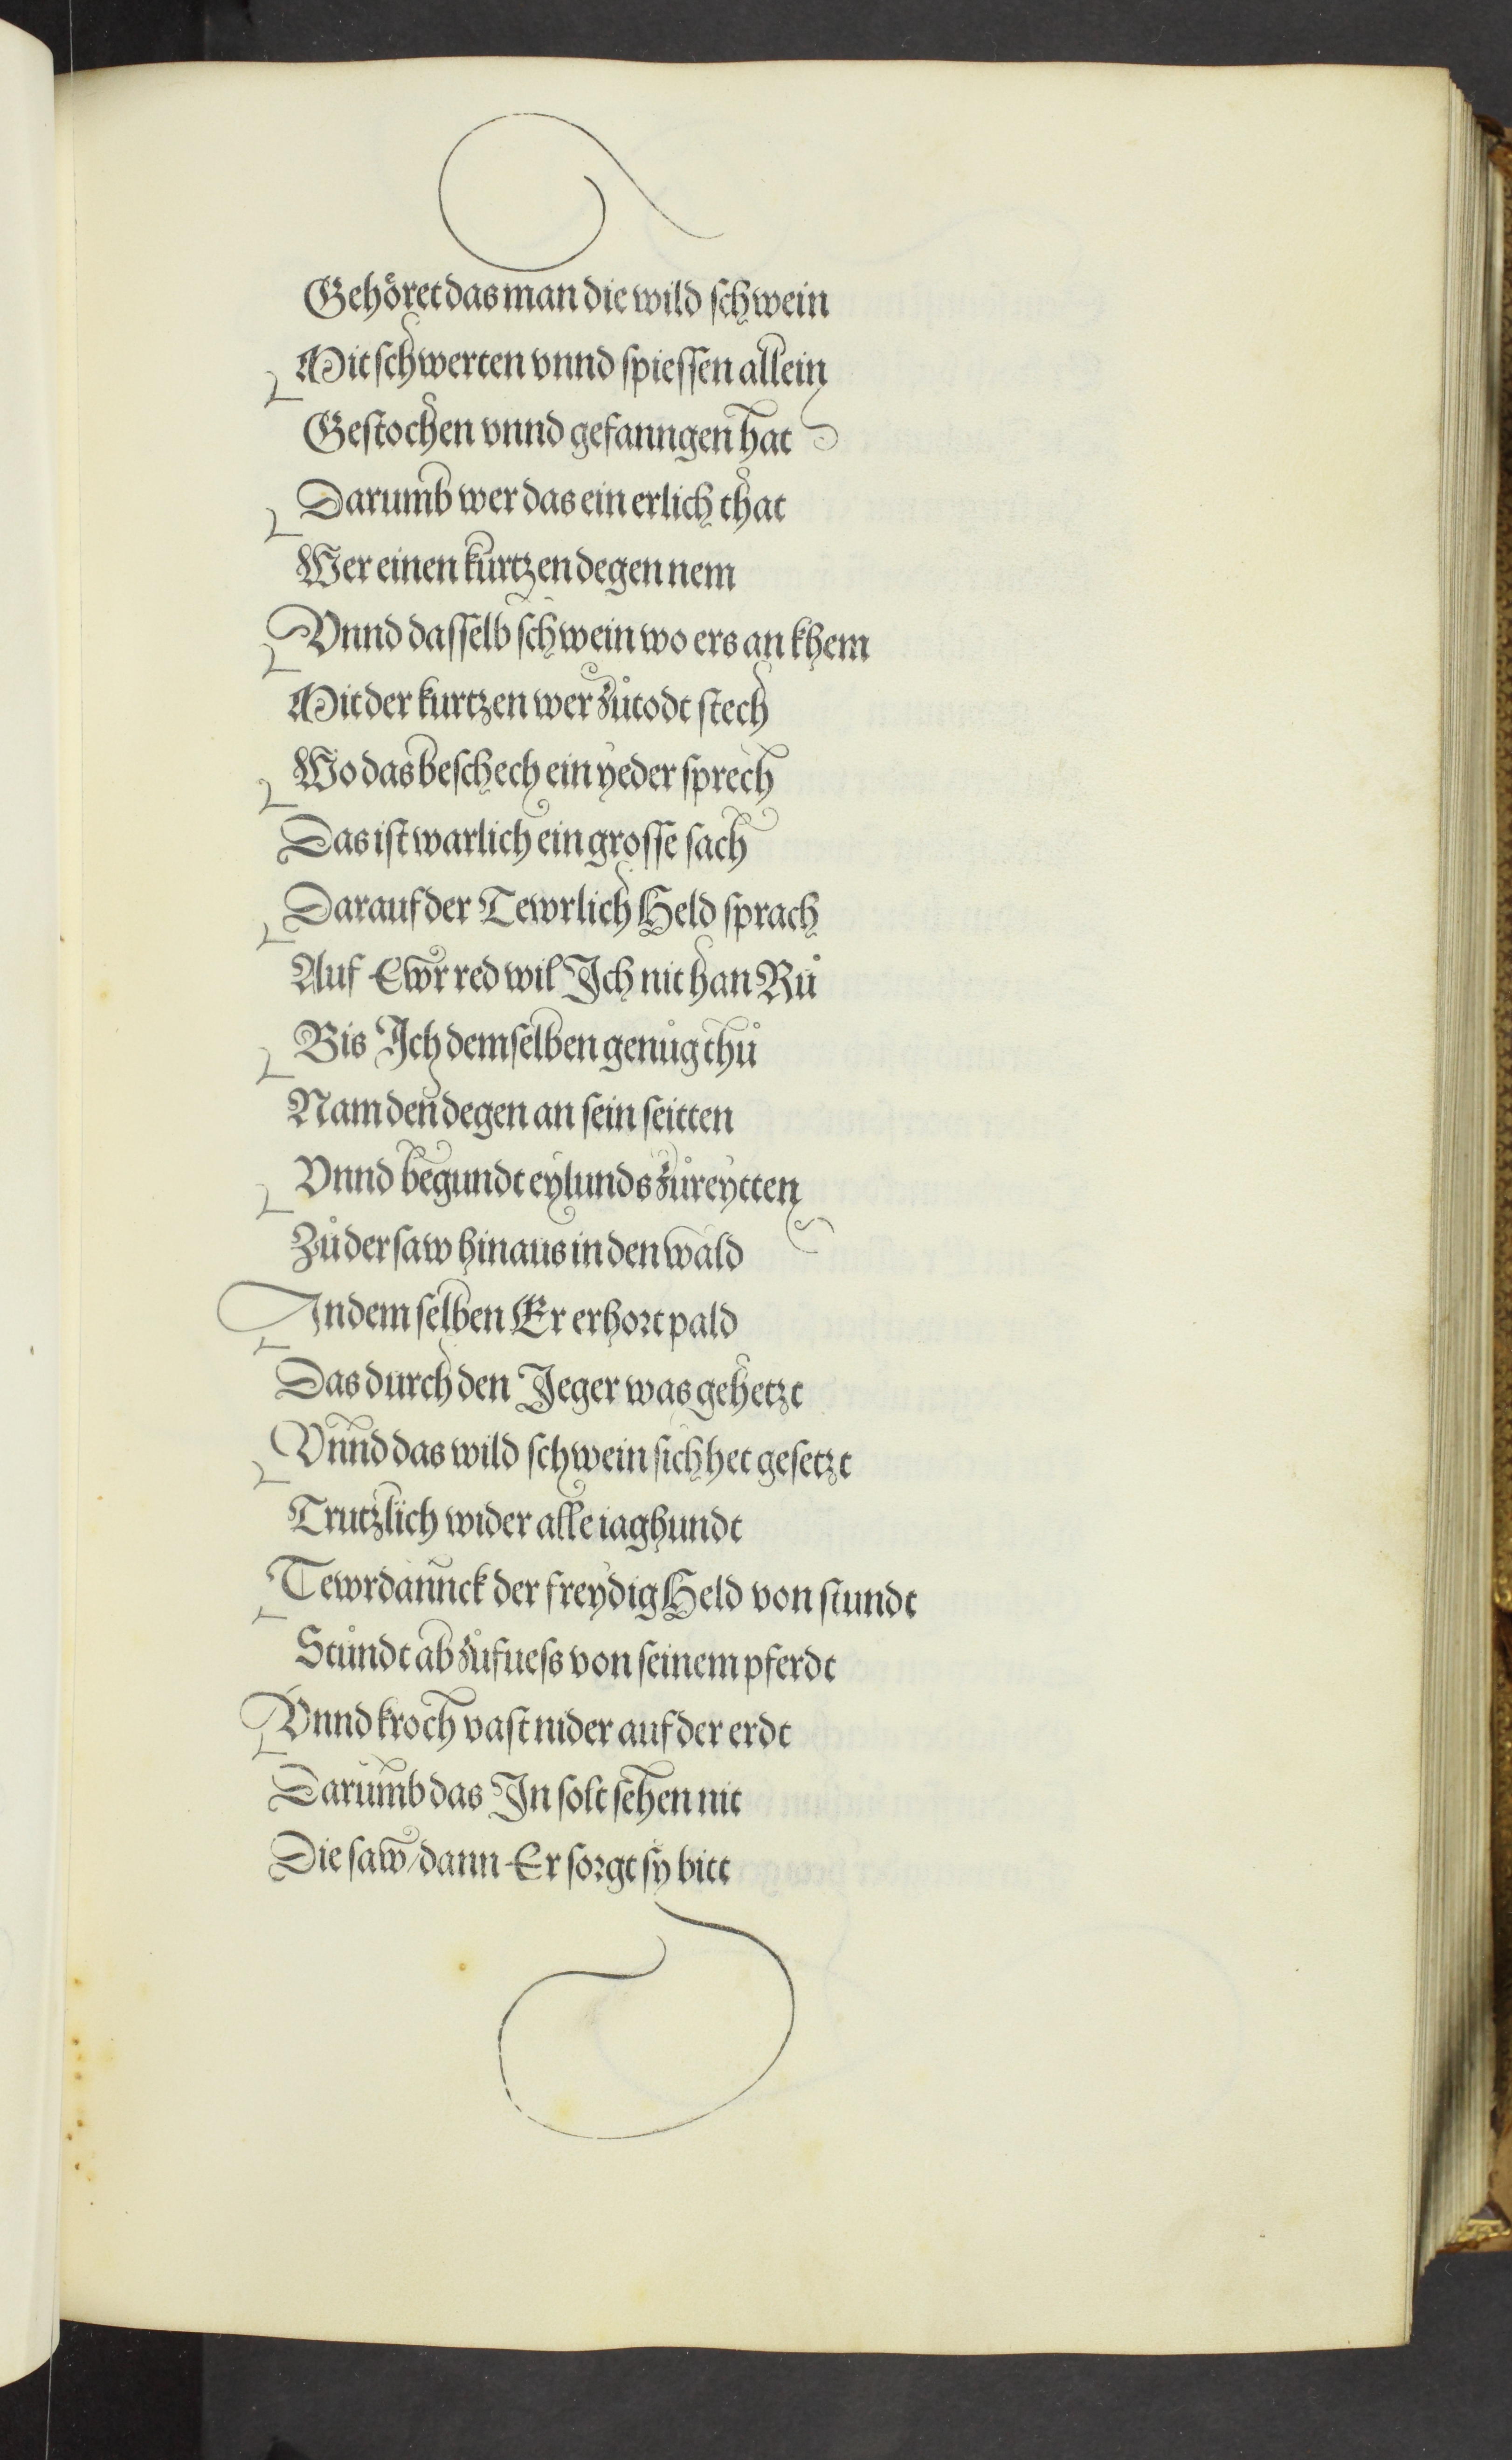 Gehöret das man die wild schwein
Mit schwerten vnnd spiessen allein
Gestochen vnnd gefanngen hat
Darumb wer das ein erlich that
Wer einen kurtzen degen nem
Vnnd dasselb schwein wo ers an khem
Mit der kurtzen wer zůtodt stech
Wo das beschech ein yeder sprech
Das ist warlich ein grosse sach
Darauf der Tewrlich Held sprach
Auf Ewr red wil Ich nit han Rů
Bis Ich demselben genůg thů
Nam den degen an sein seitten
Vnnd begundt eylunds zůreytten
Zů der saw hinaus in den wald
In dem selben Er erhort pald
Das durch den Jeger was gehetzt
Vnnd das wild schwein sich het gesetzt
Trutzlich wider alle iaghundt
Tewrdannck der freydig Held von stundt
Stůndt ab zůfuess von seinem pferdt
Vnnd kroch vast nider auf der erdt
Darumb das In solt sehen nit
Die saw / dann Er sorgt sy bitt